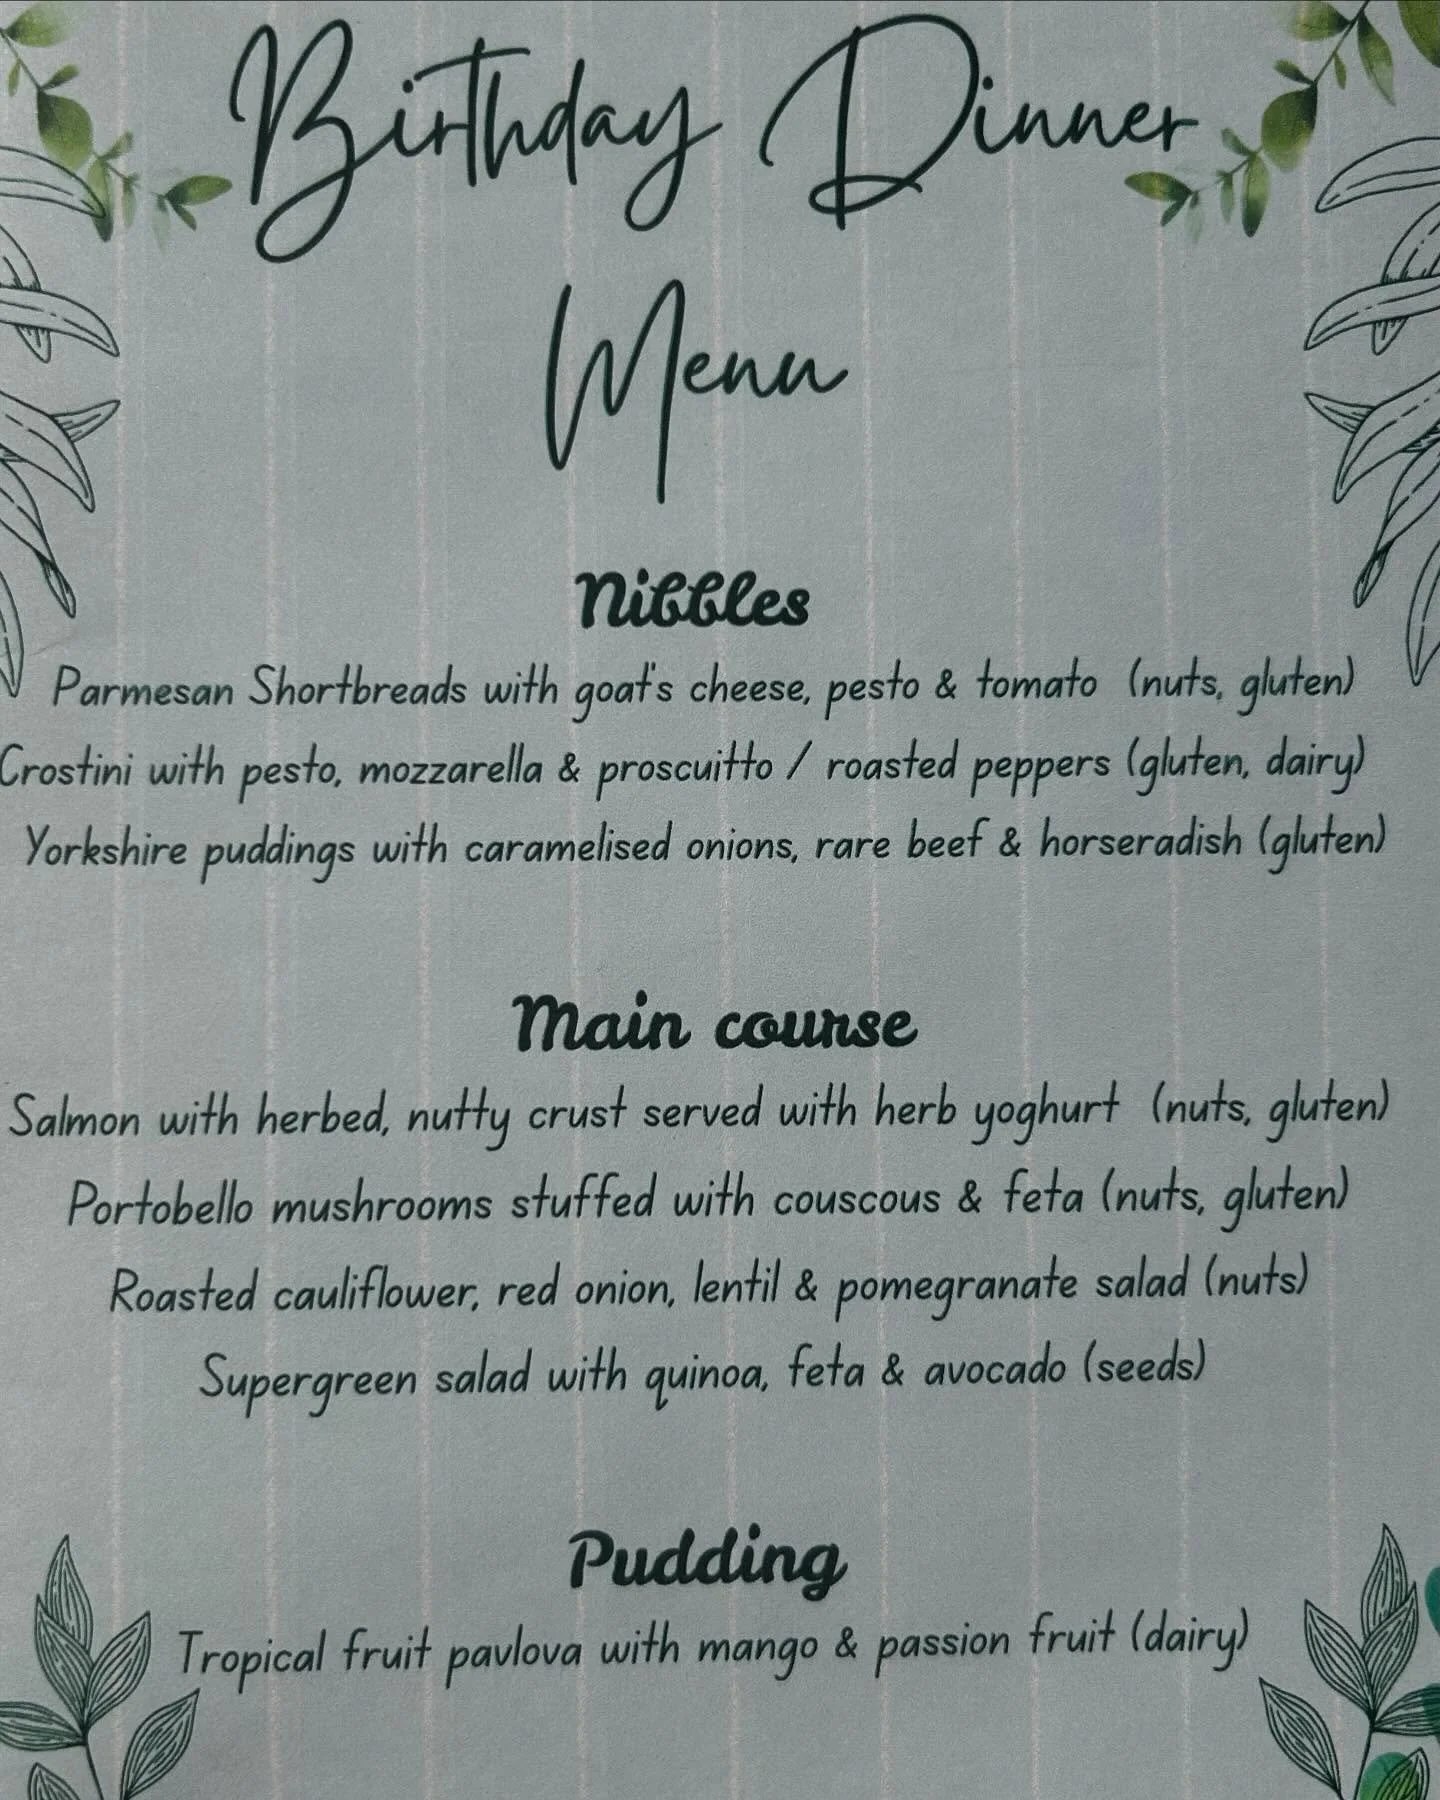 Birthday Dinner
Menu
Nibbles
Parmesan Shortbreads with goat's cheese, pesto & tomato (nuts, gluten)
Crostini with pesto, mozzarella & proscuitto / roasted peppers (gluten, dairy)
Yorkshire puddings with caramelised onions, rare beef & horseradish (gluten)
Main course
Salmon with herbed, nutty crust served with herb yoghurt (nuts, gluten)
Portobello mushrooms stuffed with couscous & feta (nuts, gluten)
Roasted cauliflower, red onion, lentil & pomegranate salad (nuts)
Supergreen salad with quinoa, feta & avocado (seeds)
Pudding
Tropical fruit pavlova with mango & passion fruit (dairy)